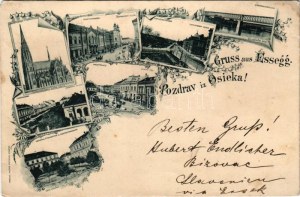 Gruss aus Essegg.
Pozdrav iz Osieka!
Besten Gruß!
Hubert Endlicher
Bizovac
Slavonien
via Essek